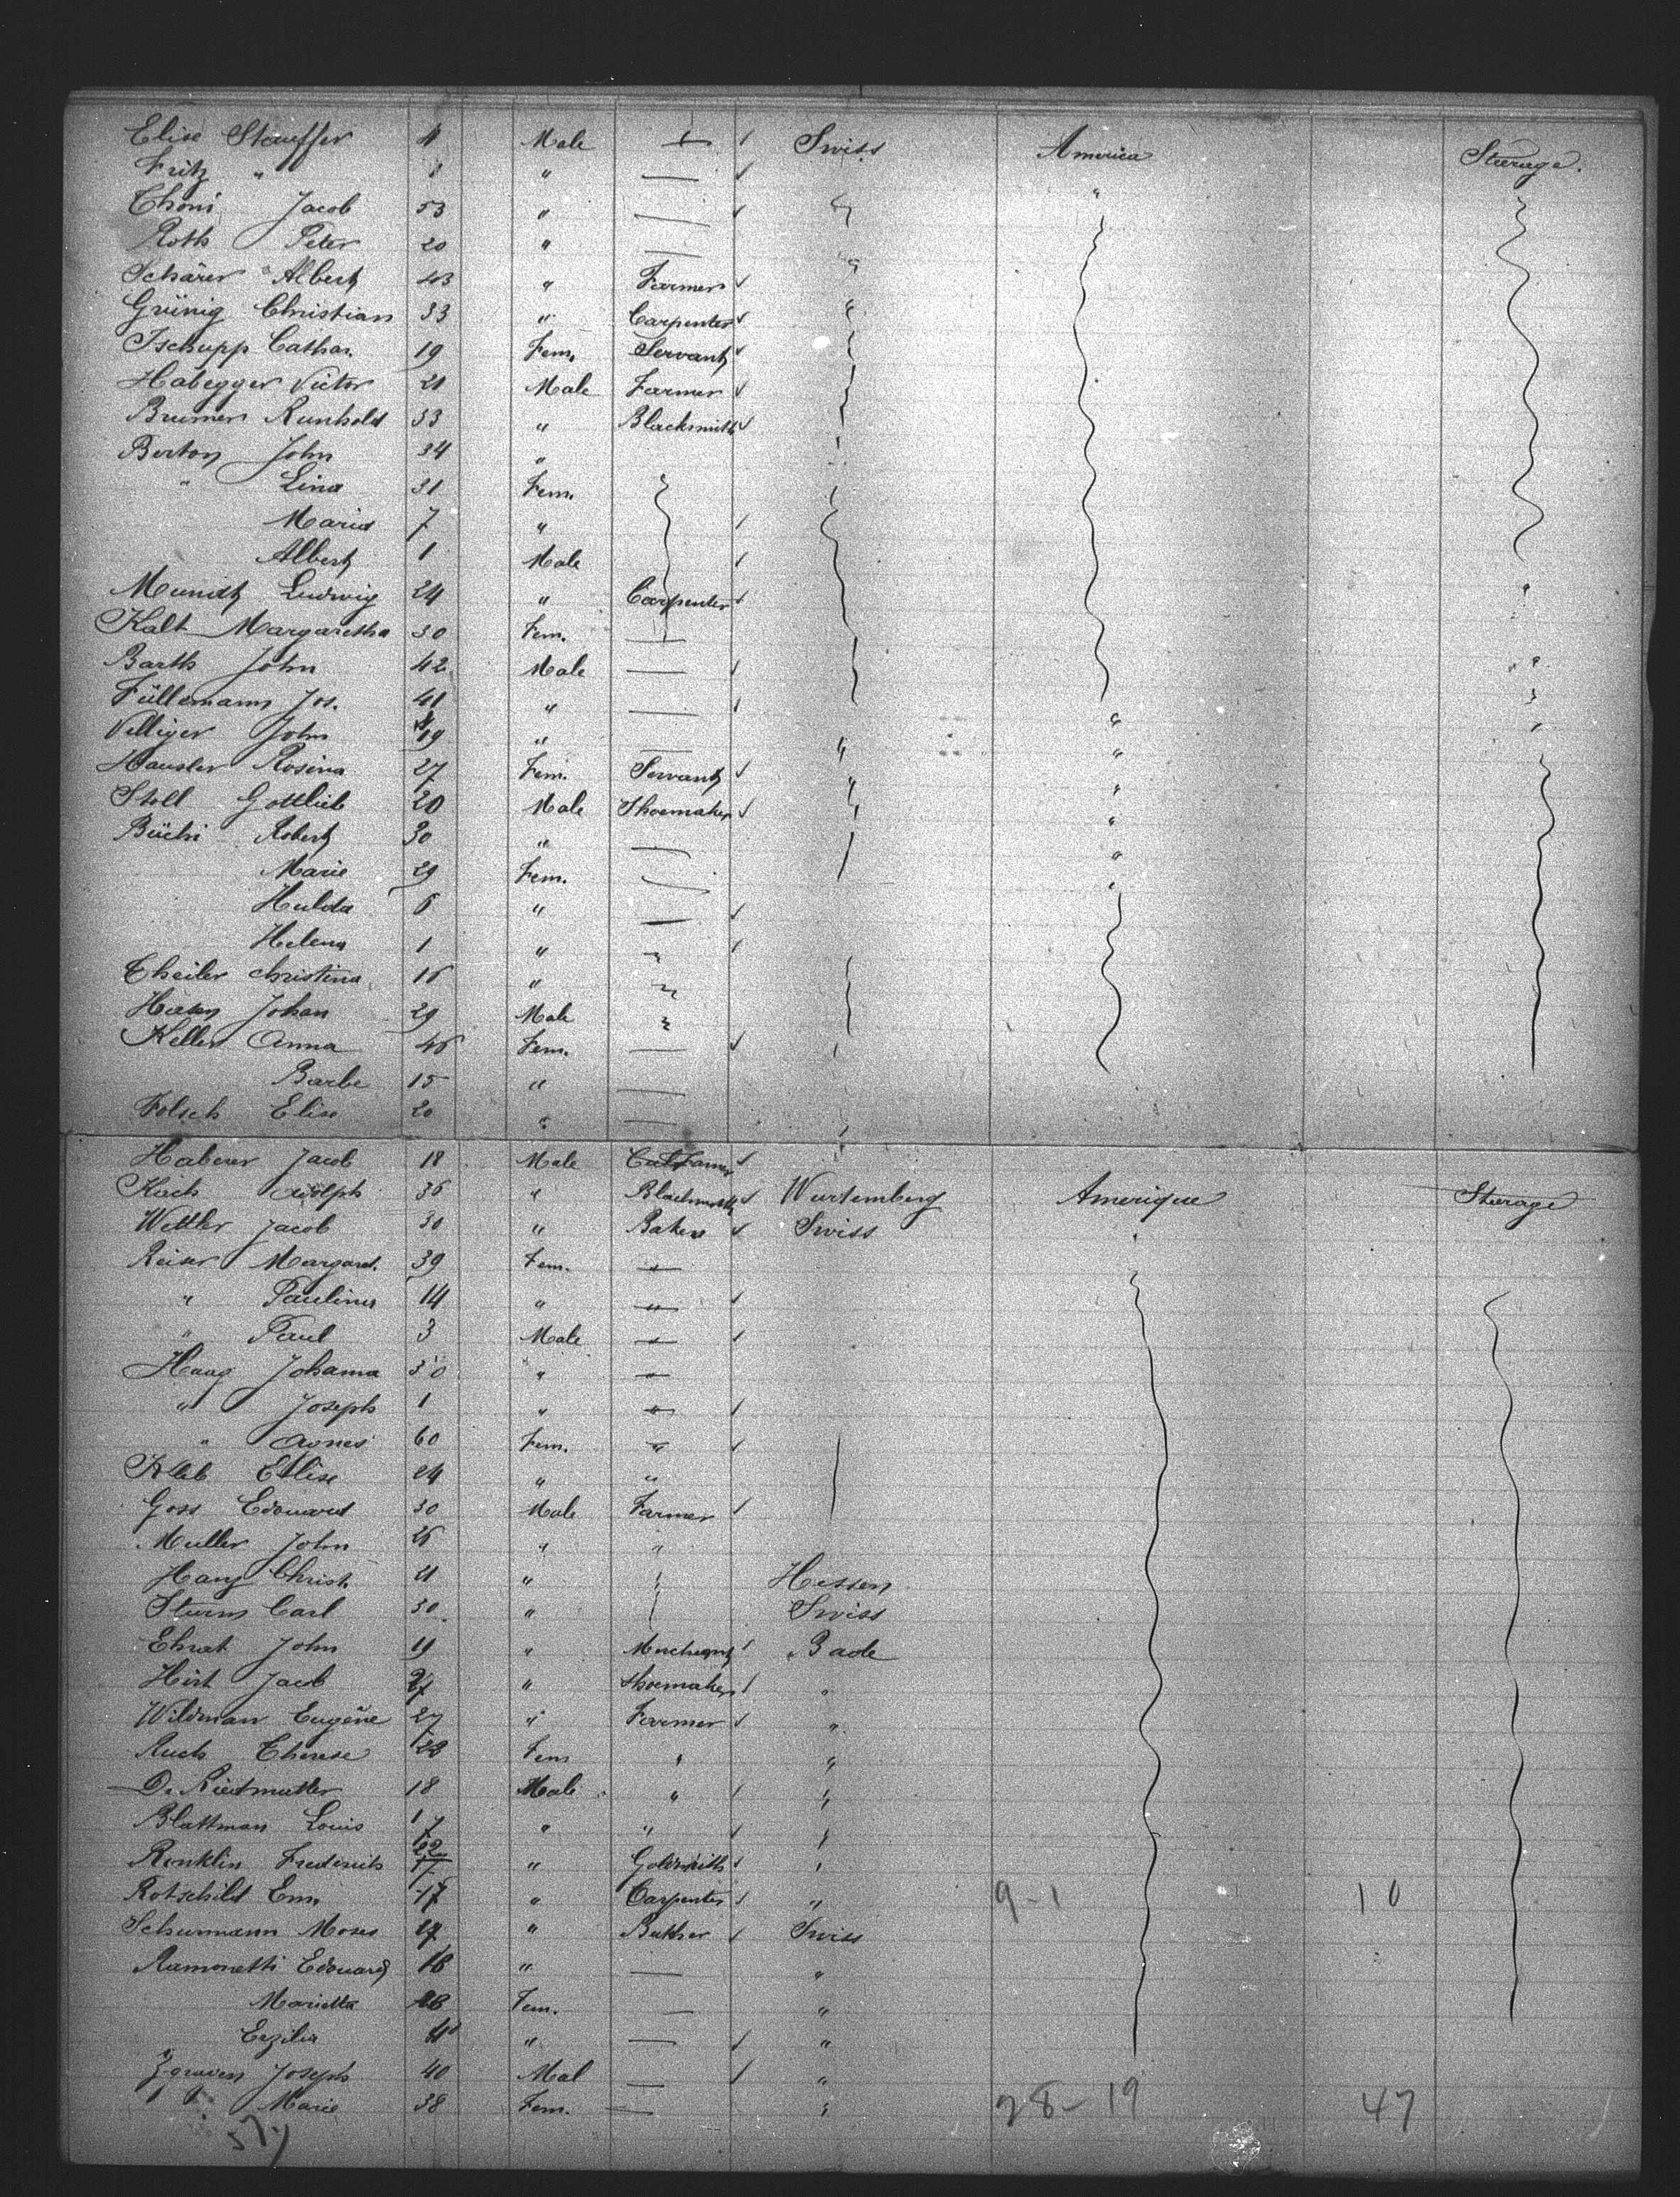 Elise Stauffer 4 Male Swiss America Steerage.
Fritz " "
Thoni Jacob 53 " "
Roth Peter 20 "
Schärer Albert 43 " Farmer
Grünig Christian 33 " Carpenter
Tschupp Cathar. 19 Fem. Servant
Habegger Victor 21 Male Farmer
Brumer Runhold 33 " Blacksmith
Berton John 34 "
" Lina 31 Fem.
Maria 7 "
Albert 1 Male
Mundt Ludwig 24 " Carpenter
Kalt Margaretha 30 Fem.
Barth John 42 Male
Füllemann Jos. 41 "
Villiger John 19 "
Hausler Rosina 27 Fem. Servant
Stoll Gottlieb 20 Male Shoemaker
Büchi Robert 30 "
Marie 29 Fem.
Hulda 6 "
Helena 1 "
Theiler Christina 16 "
Johan 29 Male
Keller Anna 46 Fem.
Barbe 15 "
Folsch Elise 20 "
Haberer Jacob 18 Male
Adolph 36 " Blacksmith Wurtemberg Amerique Steerage
Wettler Jacob 30 " Baker Swiss
Reiser Margaret. 39 Fem.
" Pauline 14 "
" Paul 3 Male
Haag Johanna 30 "
" Joseph 1 "
" Agnes 60 Fem. "
Elise 24 " "
Goss Edouard 30 Male Farmer
Muller John 26 " "
Christ. 21 " Hessen
Sturm Carl 30 " Swiss
Ehrat John 19 " Merchant Bade
Hirt Jacob " Shoemaker "
Wildman Eugène 27 " Farmer "
Ruch Therese 22 Fem " "
D. Riedmutter 18 Male " "
Blattman Louis 17 " "
Renklin Frederich 22 " Goldsmith
Rotschild Em. 17 " Carpenter " 9-1 10
Schurmann Moses " Butcher Swiss
Ramonetti Edouard " "
Marietta Fem. "
Erzilia " "
Zgraven Joseph 40 Mal "
" " Marie 38 Fem. " 28-19 47
57